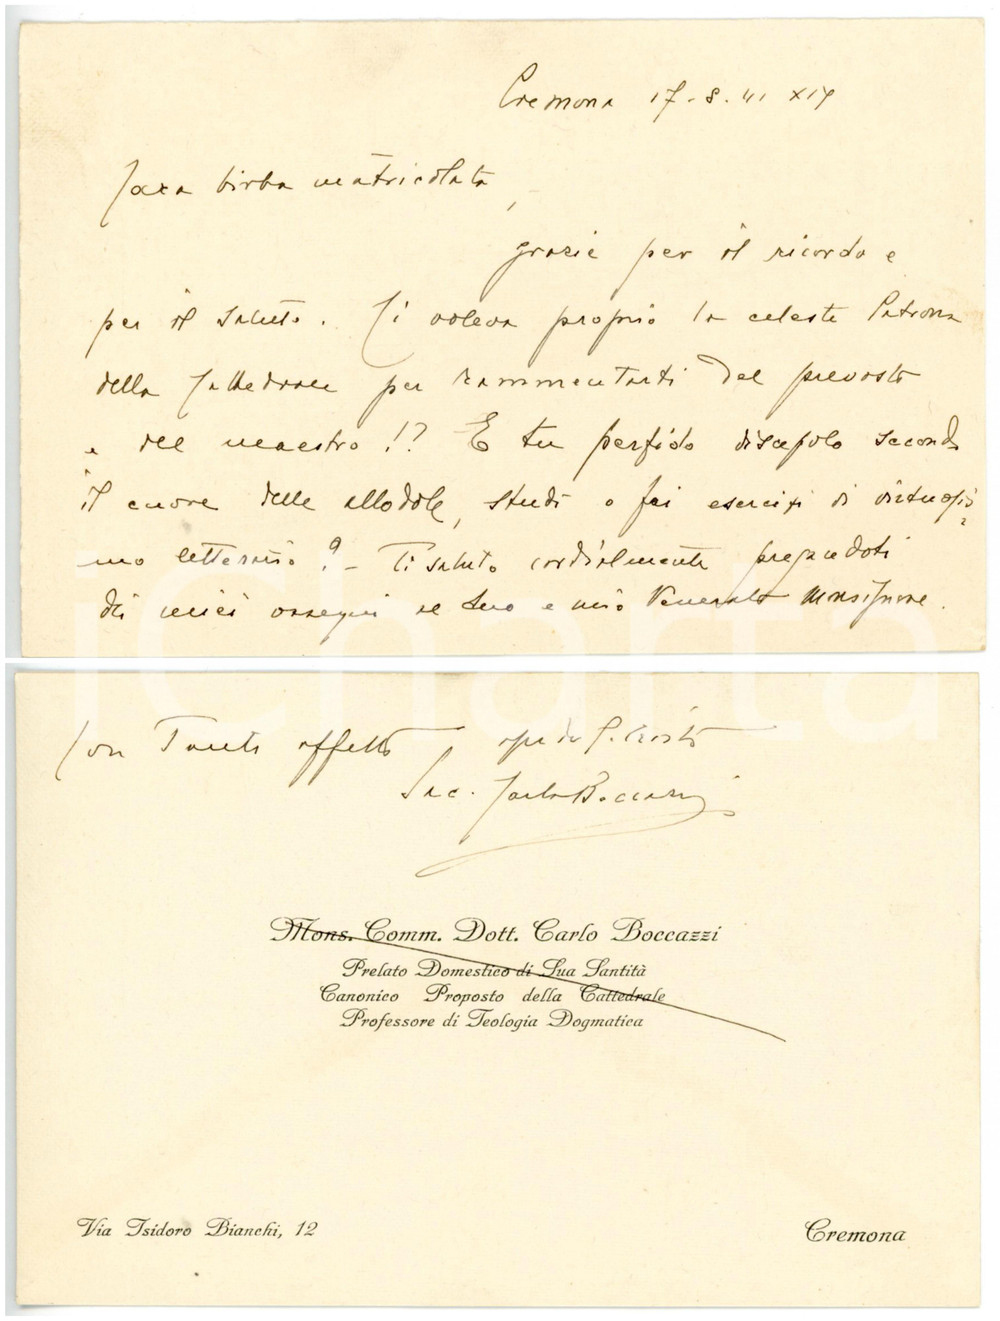 Cremona 17-8-41 XIX
Cara birba matricolata,
grazie per il ricordo e
per il saluto. Ci voleva proprio la celeste Patrona
della Cattedrale per rammentarti del prevosto
e del maestro!? E tu perfido discepolo secondo
il cuore delle allodole, studi o fai esercizi di virtuosis=
mo letterario? - Ti saluto cordialmente pregandoti
dei miei ossequi al tuo e mio Venerato Monsignore.
Con tanto affetto
Sac. Carlo Boccazzi
Mons. Comm. Dott. Carlo Boccazzi
Prelato Domestico di Sua Santità
Canonico Proposto della Cattedrale
Professore di Teologia Dogmatica
Via Isidoro Bianchi, 12
Cremona
iCharta